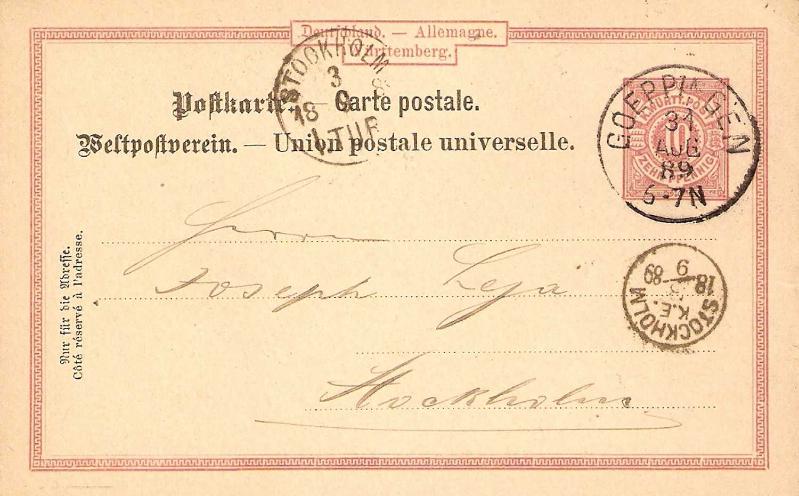 Deutschland. — Allemagne.
Württemberg.
Postkarte. — Carte postale.
Weltpostverein. — Union postale universelle.
STOCKHOLM
3
18
1. TUR
K. WÜRTT. POST
10
ZEHN PFENNIG
GOEPPINGEN
31
AUG
89
6-7N
Herrn
Joseph Leja
Stockholm
Nur für die Adresse.
Côté réservé à l'adresse.
9
18 89
K.E.
STOCKHOLM